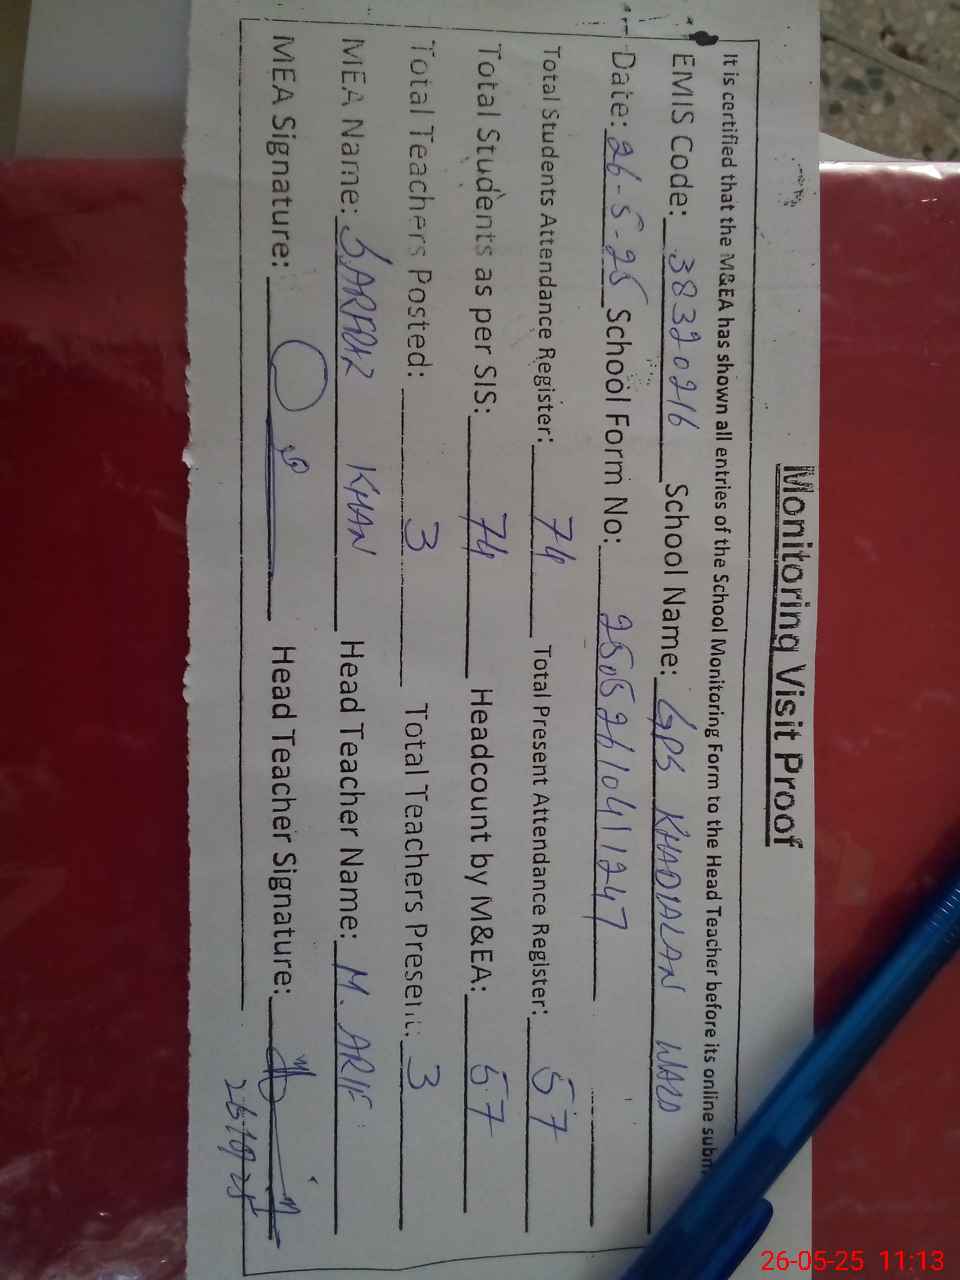 Monitoring Visit Proof
It is certified that the M&EA has shown all entries of the School Monitoring Form to the Head Teacher before its online subm
EMIS Code: 38320216 School Name: GPS KHADIALAN WALD
Date: 26-5-25 School Form No: 25052610411247
Total Students Attendance Register: 74 Total Present Attendance Register: 57
Total Students as per SIS: 74 Headcount by M&EA: 57
Total Teachers Posted: 3 Total Teachers Present: 3
MEA Name: SARFRAZ KHAN Head Teacher Name: M. ARIF
MEA Signature: Head Teacher Signature:
26-05-25 11:13